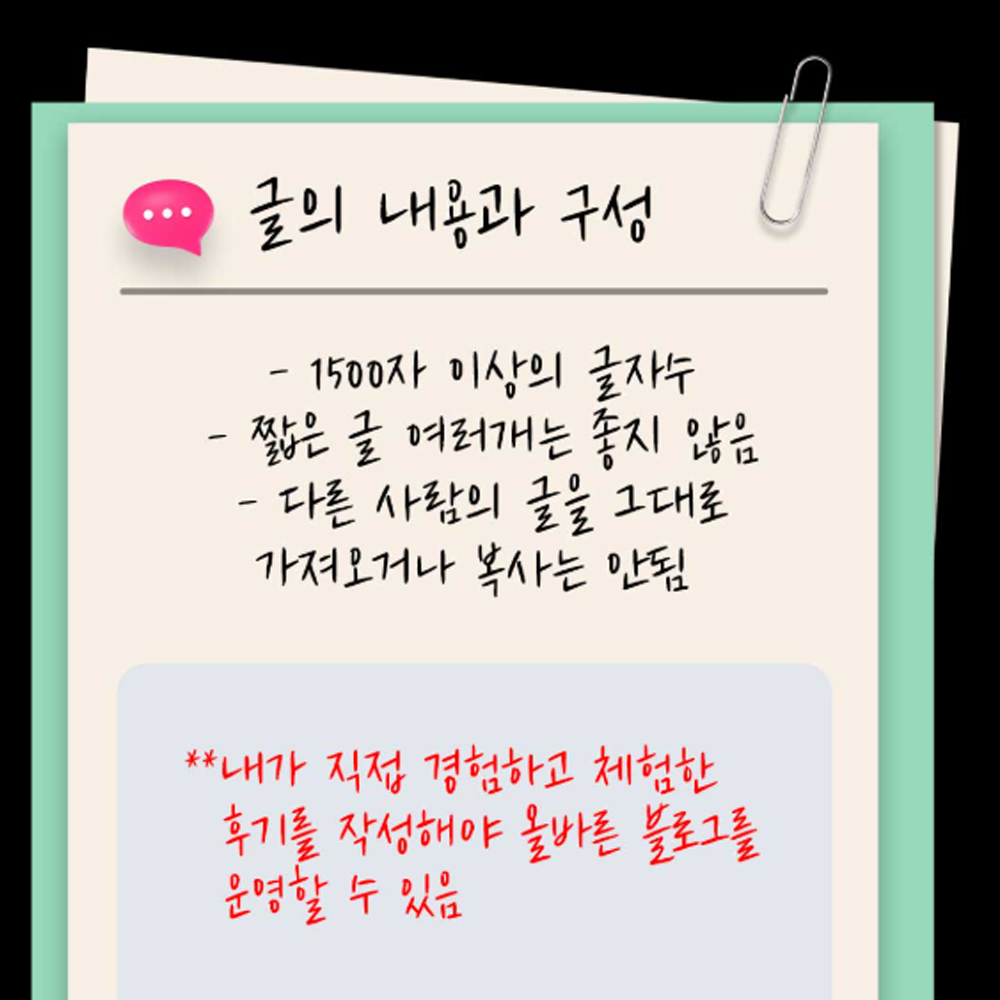 글의 내용과 구성
- 1500자 이상의 글자수
- 짧은 글 여러개는 좋지 않음
- 다른 사람의 글을 그대로
가져오거나 복사는 안됨
**내가 직접 경험하고 체험한
후기를 작성해야 올바른 블로그를
운영할 수 있음